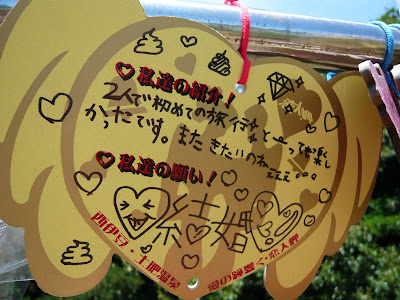 私達の紹介!
2人で初めての旅行とーっても楽し
かったです。またきたいのねぇぇぇ...
私達の願い!
結婚
西伊豆・土肥温泉
愛の鐘響く・恋人岬